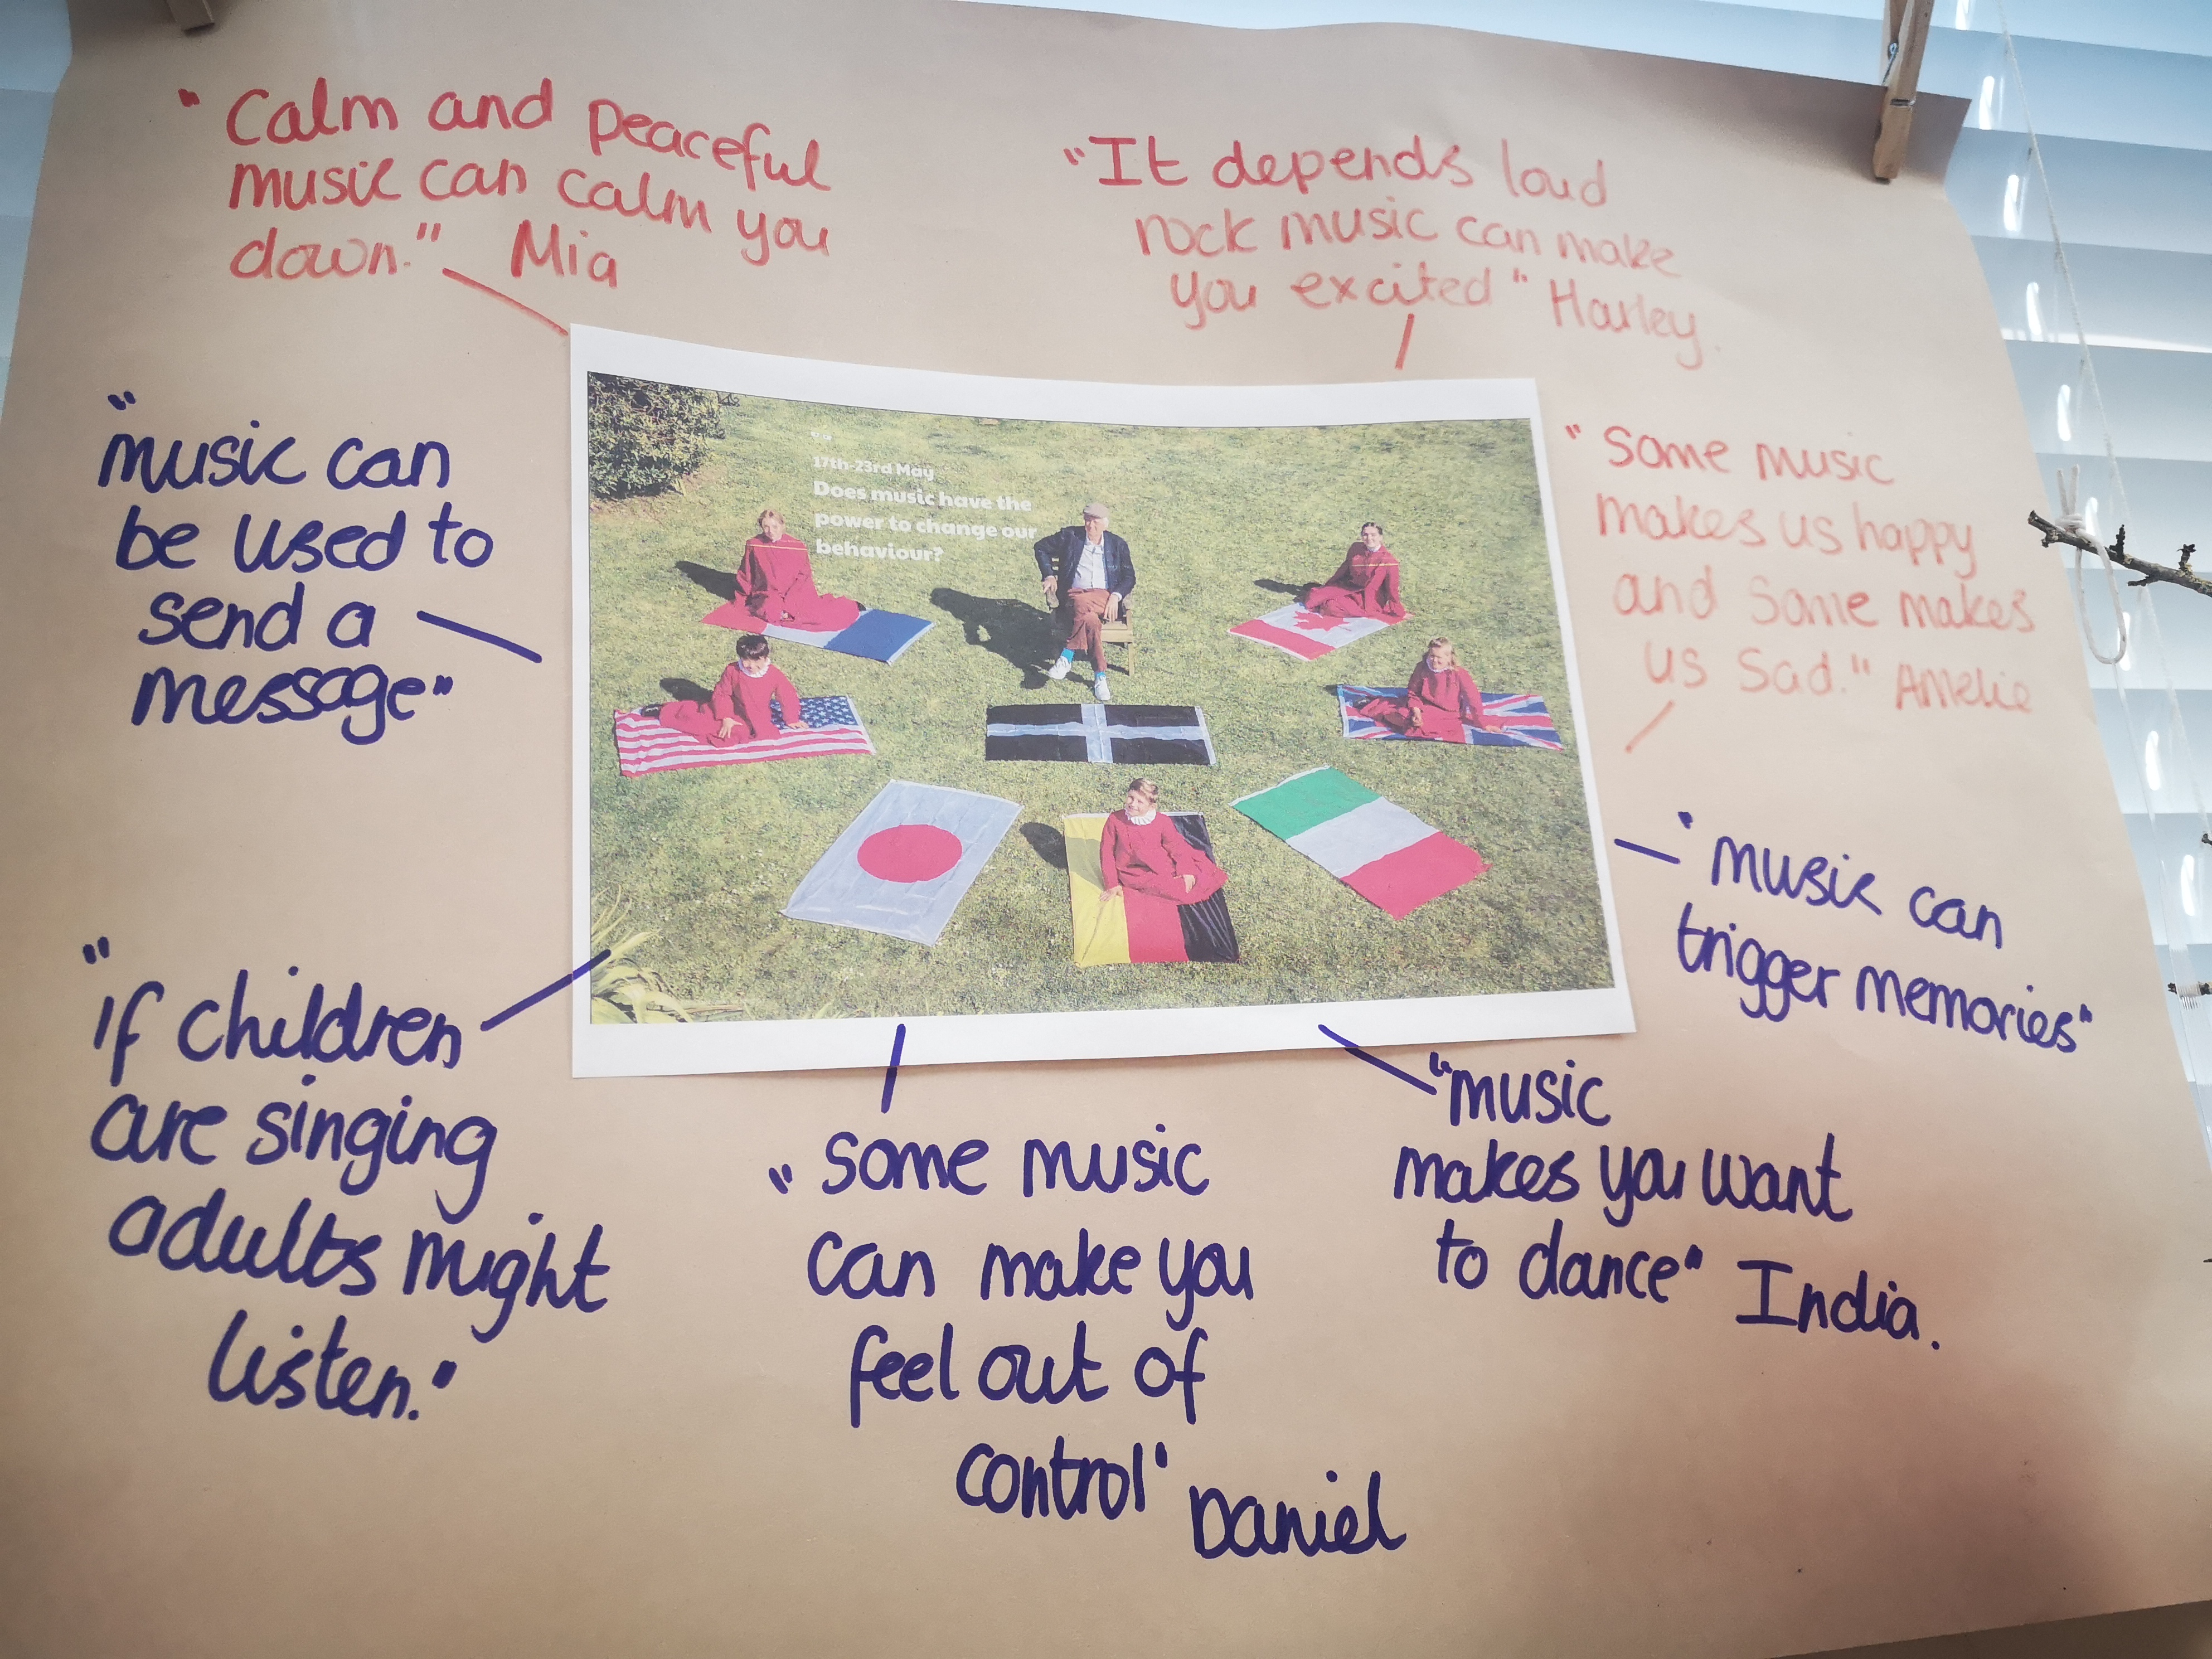 " Calm and peaceful
music can calm you
down." Mia
"It depends loud
rock music can make
you excited" Harley.
"music can
be used to
send a
message"
17th-23rd May
Does music have the
power to change our
behaviour?
"Some music
makes us happy
and some makes
us sad." Amelie
"music can
trigger memories"
"if children
are singing
adults might
listen."
"some music
can make you
feel out of
control" Daniel
"music
makes you want
to dance" India.